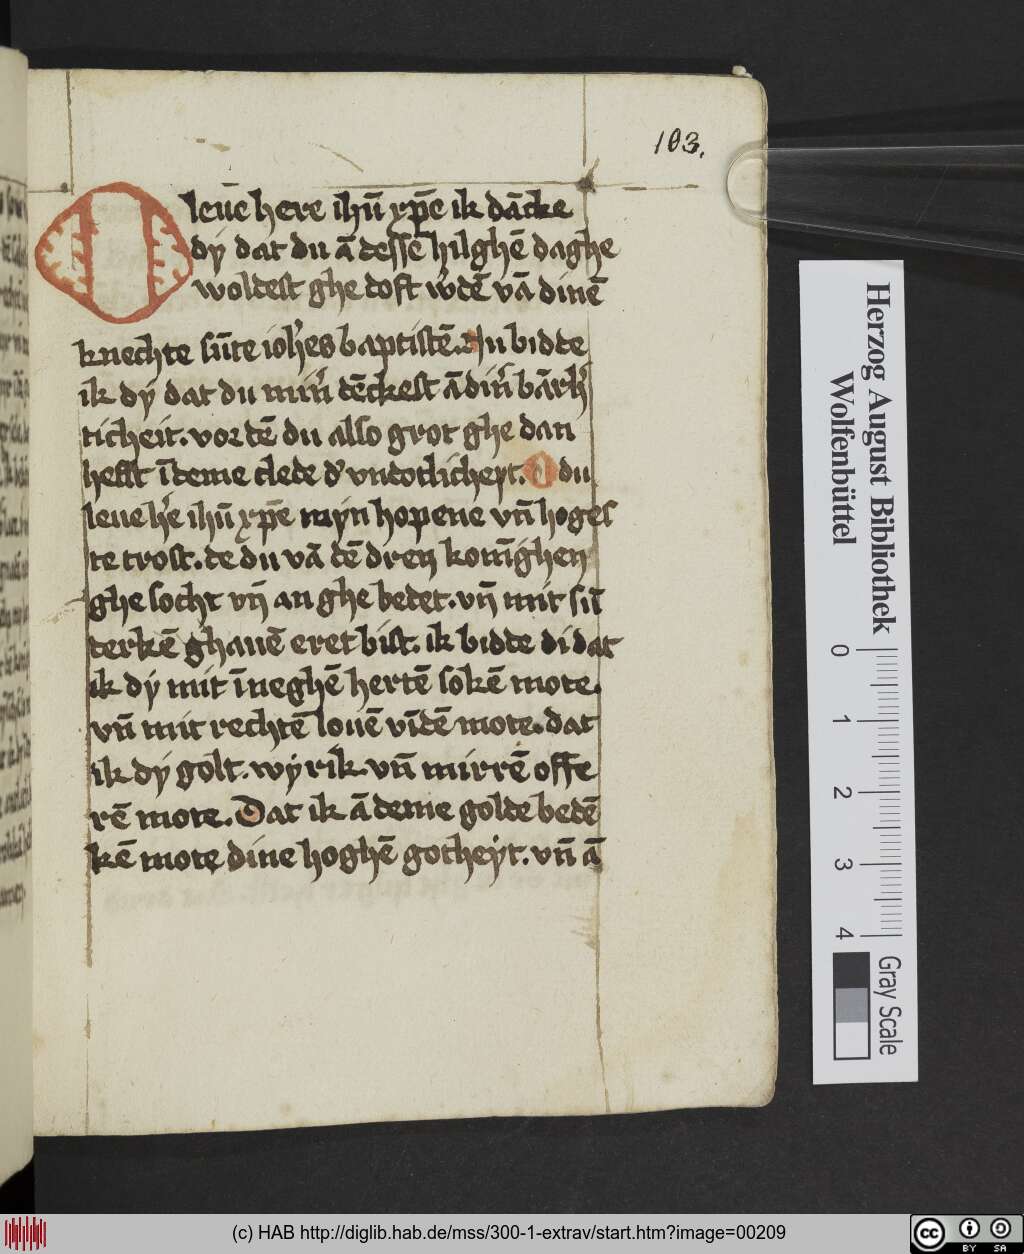 103.
O leuē here ihū xp̄e ik dācke
dÿ dat du ā desse hilghē daghe
woldest ghe doft wdē vā dinē
knechte sūte ioh'es baptistē. Nu bidde
ik dÿ dat du min' dēckest ā din' bārh'
ticheit. vordē du also grot ghe dan
hefst ī deme clede d' vndotlicheyt. O du
leue h'e ihū xp̄e mÿn hopene vn̄ hoges
te trost. de du vā dē dren konīghen
ghe socht vn̄ an ghe bedet. vn̄ mit sū
derkē ghauē eret bist. ik bidde di dat
ik dÿ mit īneghē hertē sokē mote.
vn̄ mit rechtē louē vīdē mote. dat
ik dÿ golt. wÿrik. vn̄ mirrē offe
rē mote. Dat ik ā deme golde bedē
kē mote dine hoghē gotheÿt. vn̄ ā
Herzog August Bibliothek
Wolfenbüttel
0 1 2 3 4
Gray Scale
(c) HAB http://diglib.hab.de/mss/300-1-extrav/start.htm?image=00209
cc BY SA